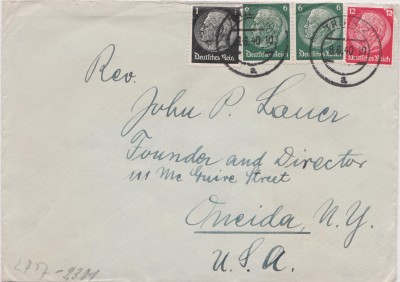 1 6 6 12
Deutsches Reich Deutsches Reich Deutsches Reich Deutsches Reich
40.10
a a
Rev.
John P. Lauer
Founder and Director
111 Mc Guire Street
Oneida, N.Y.
U.S.A.
2757-2381